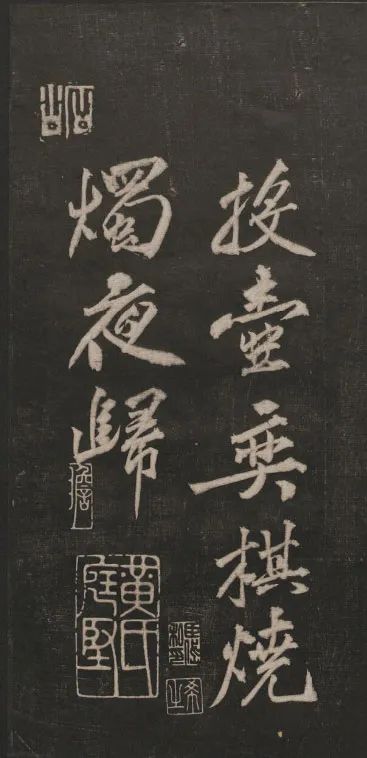 投壺奕棋燒
燭夜歸
黃氏庭堅